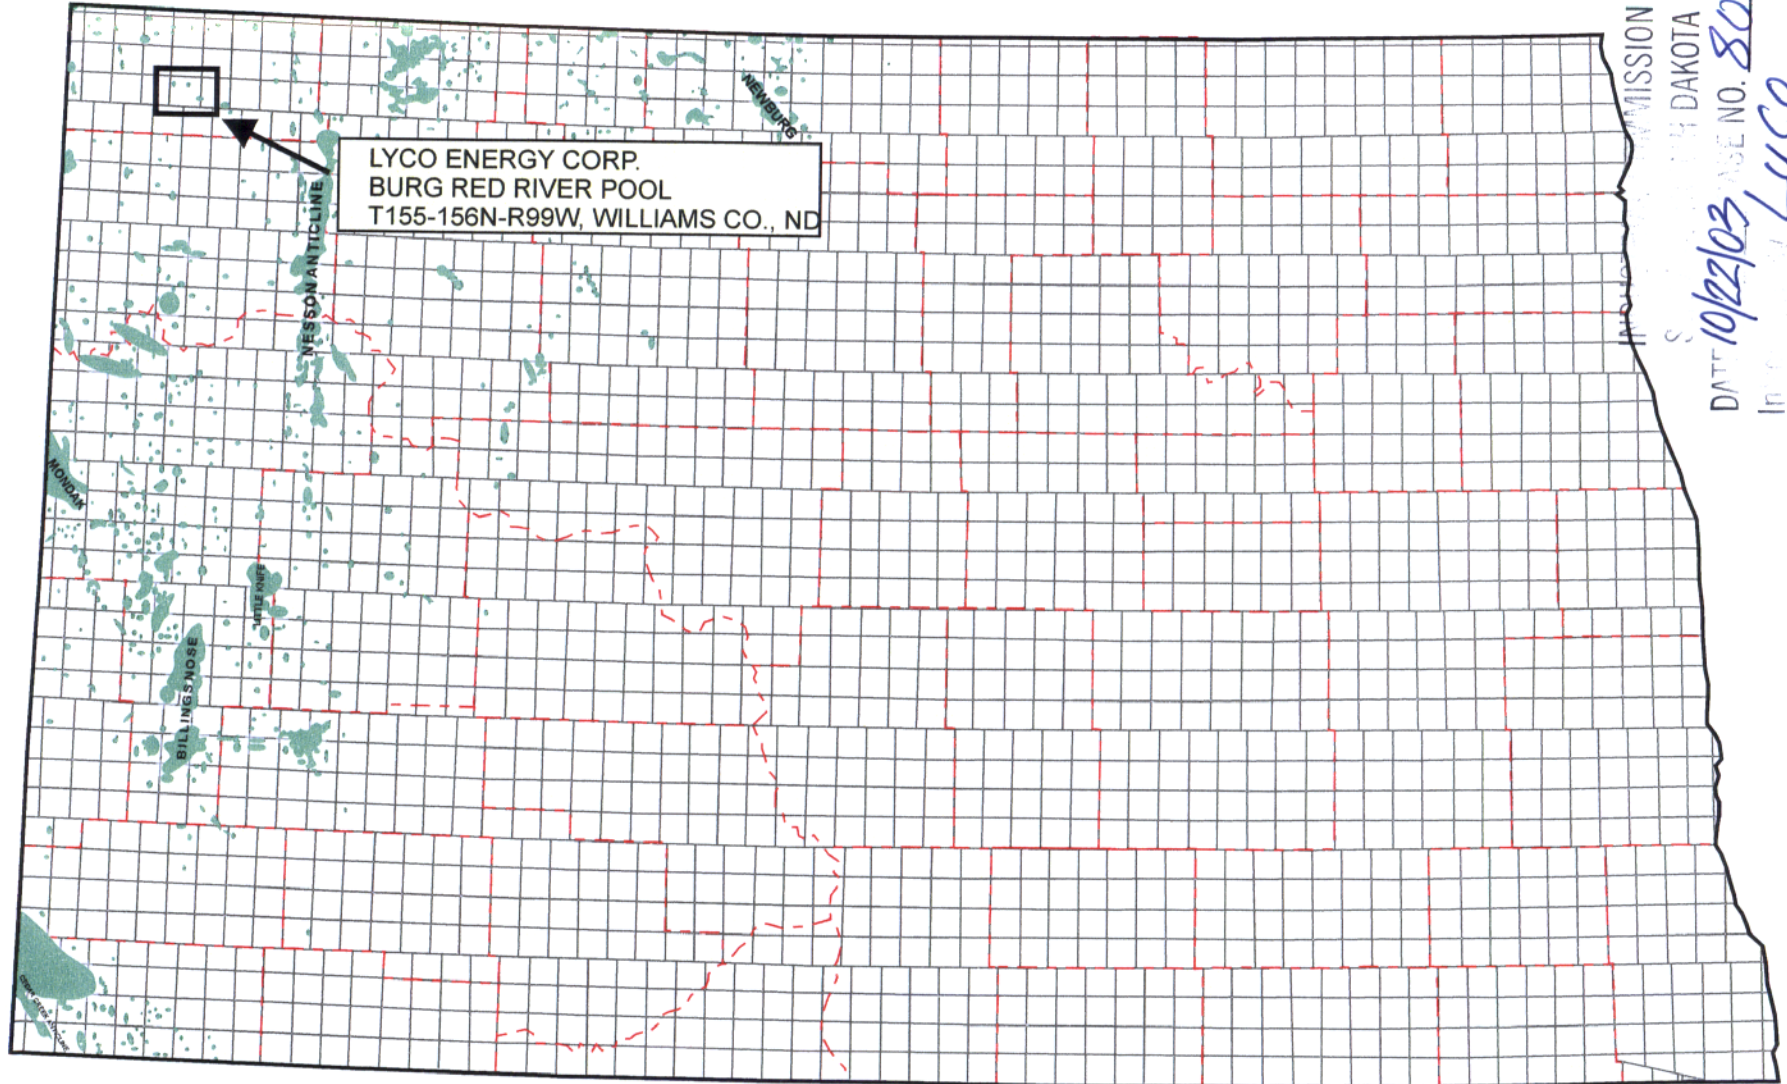 NEWBURG
LYCO ENERGY CORP.
BURG RED RIVER POOL
T155-156N-R99W, WILLIAMS CO., ND
NESSON ANTICLINE
MONDAK
LITTLE KNIFE
BILLINGS NOSE
CEDAR CREEK ANTICLINE
MISSION
DAKOTA
DATE 10/22/03 CASE NO. 80
LYCO